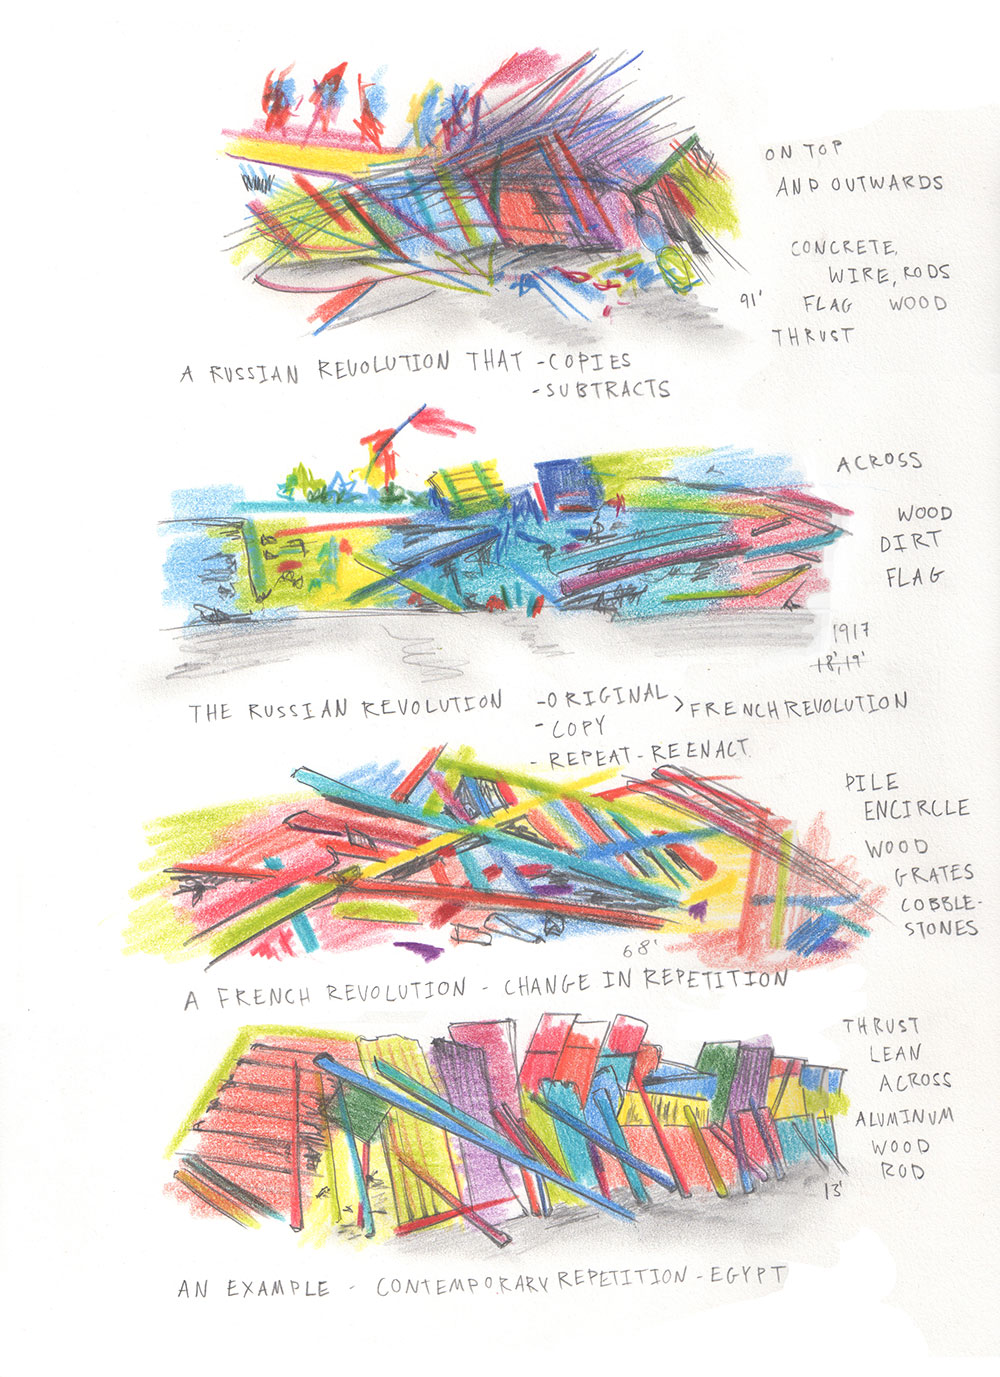 ON TOP
AND OUTWARDS
CONCRETE,
WIRE, RODS
91' FLAG WOOD
THRUST
A RUSSIAN REVOLUTION THAT -COPIES
-SUBTRACTS
ACROSS
WOOD
DIRT
FLAG
1917
18', 19'
THE RUSSIAN REVOLUTION -ORIGINAL > FRENCH REVOLUTION
- COPY
- REPEAT - REENACT
PILE
ENCIRCLE
WOOD
GRATES
COBBLE-
STONES
68'
A FRENCH REVOLUTION - CHANGE IN REPETITION
THRUST
LEAN
ACROSS
ALUMINUM
WOOD
ROD
13'
AN EXAMPLE - CONTEMPORARY REPETITION - EGYPT